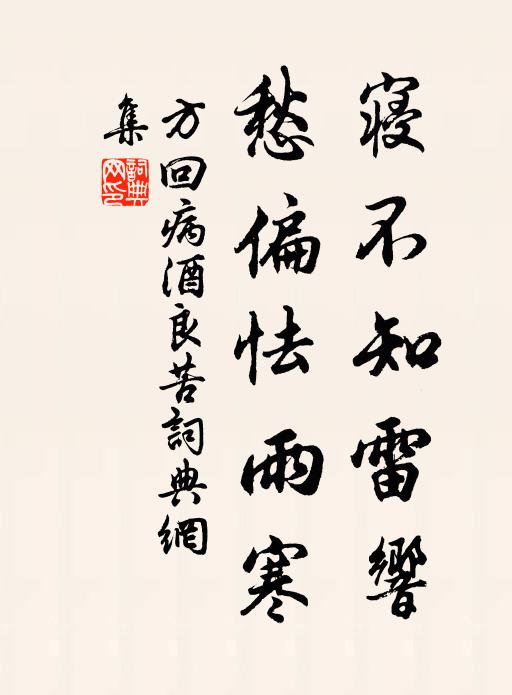 寝不知雷響
愁偏怯雨寒
方回病酒良苦詞典網
集
詞典網印